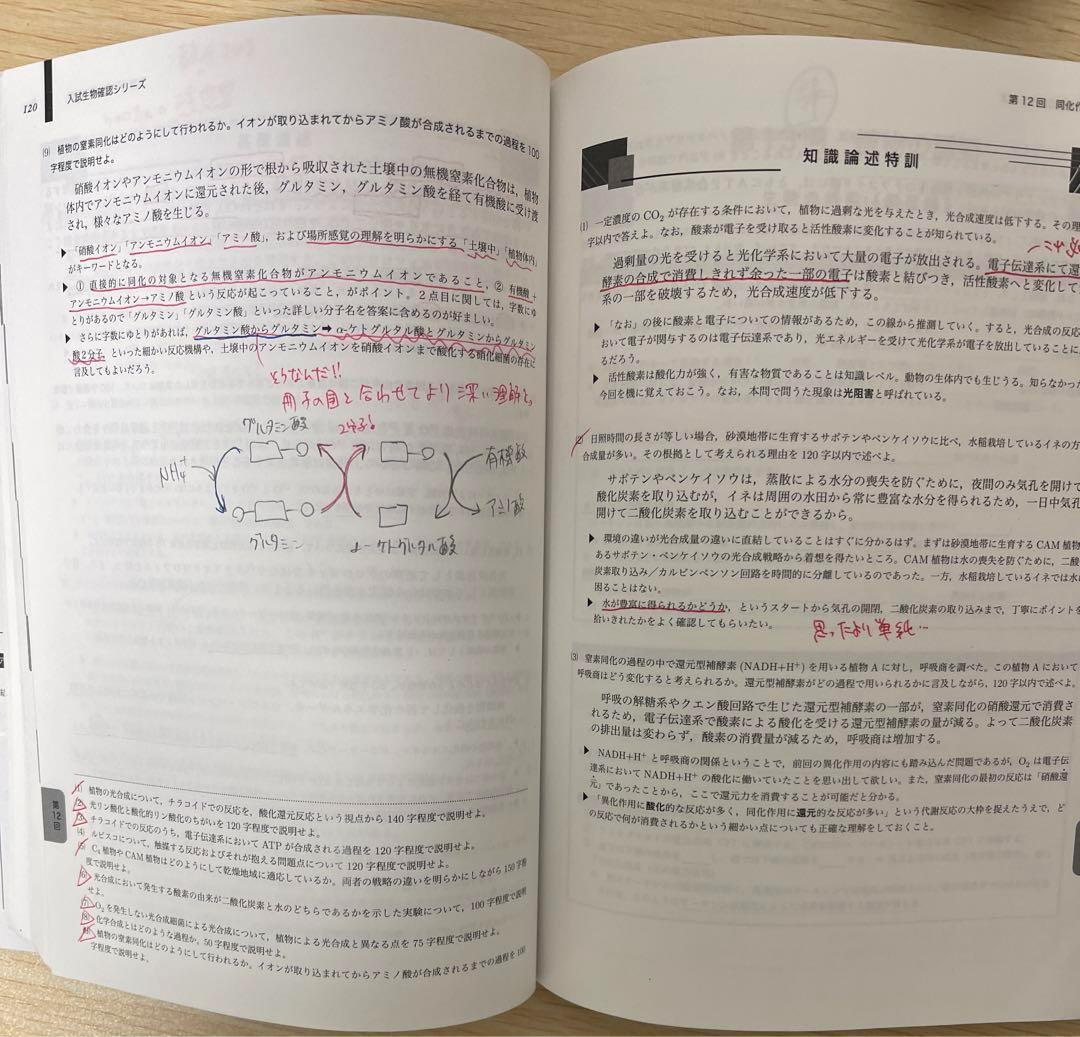 120
入試生物確認シリーズ
(9) 植物の窒素同化はどのようにして行われるか。イオンが取り込まれてからアミノ酸が合成されるまでの過程を100
字程度で説明せよ。
硝酸イオンやアンモニウムイオンの形で根から吸収された土壌中の無機窒素化合物は，植物
体内でアンモニウムイオンに還元された後，グルタミン，グルタミン酸を経て有機酸に受け渡
され，様々なアミノ酸を生じる。
▶「硝酸イオン」「アンモニウムイオン」「アミノ酸」，および場所感覚の理解を明らかにする「土壌中」「植物体内」
がキーワードとなる。
▶ ① 直接的に同化の対象となる無機窒素化合物がアンモニウムイオンであること，② 有機酸＋
アンモニウムイオン→アミノ酸 という反応が起こっていること，がポイント。2点目に関しては，字数にゆ
とりがあるので「グルタミン」「グルタミン酸」といった詳しい分子名を答案に含めるのが好ましい。
▶ さらに字数にゆとりがあれば，グルタミン酸からグルタミン ➡ α-ケトグルタル酸とグルタミンからグルタミン
酸2分子，といった細かい反応機構や，土壌中のアンモニウムイオンを硝酸イオンまで酸化する硝化細菌の存在に
言及してもよいだろう。
そうなんだ!!
冊子の図と合わせてより深い理解を。
グルタミン酸
2分子!
NH₄⁺
有機酸
アミノ酸
グルタミン
α-ケトグルタル酸
第12回
(1) 植物の光合成について，チラコイドでの反応を，酸化還元反応という視点から 140 字程度で説明せよ。
(2) 光リン酸化と酸化的リン酸化のちがいを 120 字程度で説明せよ。
(3) チラコイドでの反応のうち，電子伝達系において ATP が合成される過程を 120 字程度で説明せよ。
(4) ルビスコについて，触媒する反応およびそれが抱える問題点について 120 字程度で説明せよ。
(5) C₄ 植物や CAM 植物はどのようにして乾燥地域に適応しているか。両者の戦略の違いを明らかにしながら 150 字程
度で説明せよ。
(6) 光合成において発生する酸素の由来が二酸化炭素と水のどちらであるかを示した実験について，100 字程度で説明
せよ。
(7) O₂ を発生しない光合成細菌による光合成について，植物による光合成と異なる点を 75 字程度で説明せよ。
(8) 化学合成とはどのような過程か。50 字程度で説明せよ。
(9) 植物の窒素同化はどのようにして行われるか。イオンが取り込まれてからアミノ酸が合成されるまでの過程を 100
字程度で説明せよ。
第12回 同化作
知識論述特訓
(1) 一定濃度の CO₂ が存在する条件において，植物に過剰な光を与えたとき，光合成速度は低下する。その理
字以内で答えよ。なお，酸素が電子を受け取ると活性酸素に変化することが知られている。
過剰量の光を受けると光化学系において大量の電子が放出される。電子伝達系にて還
酵素の合成で消費しきれず余った一部の電子は酸素と結びつき，活性酸素へと変化して
系の一部を破壊するため，光合成速度が低下する。
▶「なお」の後に酸素と電子についての情報があるため，この線から推測していく。すると，光合成の反応
おいて電子が関与するのは電子伝達系であり，光エネルギーを受けて光化学系が電子を放出していることに
るだろう。
▶ 活性酸素は酸化力が強く，有害な物質であることは知識レベル。動物の生体内でも生じうる。知らなかった
今回を機に覚えておこう。なお，本問で問うた現象は光阻害と呼ばれている。
(2) 日照時間の長さが等しい場合，砂漠地帯に生育するサボテンやベンケイソウに比べ，水稲栽培しているイネの方
合成量が多い。その根拠として考えられる理由を 120 字以内で述べよ。
サボテンやベンケイソウは，蒸散による水分の喪失を防ぐために，夜間のみ気孔を開けて
酸化炭素を取り込むが，イネは周囲の水田から常に豊富な水分を得られるため，一日中気孔
開けて二酸化炭素を取り込むことができるから。
▶ 環境の違いが光合成量の違いに直結していることはすぐに分かるはず。まずは砂漠地帯に生育する CAM 植物
あるサボテン・ベンケイソウの光合成戦略から着想を得たいところ。CAM 植物は水の喪失を防ぐために，二酸
炭素取り込み／カルビンベンソン回路を時間的に分離しているのであった。一方，水稲栽培しているイネでは水に
困ることはない。
▶ 水が豊富に得られるかどうか，というスタートから気孔の開閉，二酸化炭素の取り込みまで，丁寧にポイントを
拾いきれたかをよく確認してもらいたい。
思ったより単純…
(3) 窒素同化の過程の中で還元型補酵素 (NADH+H⁺) を用いる植物 A に対し，呼吸商を調べた。この植物 A において
呼吸商はどう変化すると考えられるか。還元型補酵素がどの過程で用いられるかに言及しながら，120 字以内で述べよ。
呼吸の解糖系やクエン酸回路で生じた還元型補酵素の一部が，窒素同化の硝酸還元で消費さ
れるため，電子伝達系で酸素による酸化を受ける還元型補酵素の量が減る。よって二酸化炭素
の排出量は変わらず，酸素の消費量が減るため，呼吸商は増加する。
▶ NADH+H⁺ と呼吸商の関係ということで，前回の異化作用の内容にも踏み込んだ問題であるが，O₂ は電子伝
達系において NADH+H⁺ の酸化に働いていたことを思い出して欲しい。また，窒素同化の最初の反応は「硝酸還
元」であったことから，ここで還元力を消費することが可能だと分かる。
▶「異化作用に酸化的な反応が多く，同化作用に還元的な反応が多い」という代謝反応の大枠を捉えたうえで，ど
の反応で何が消費されるかという細かい点についても正確な理解をしておくこと。